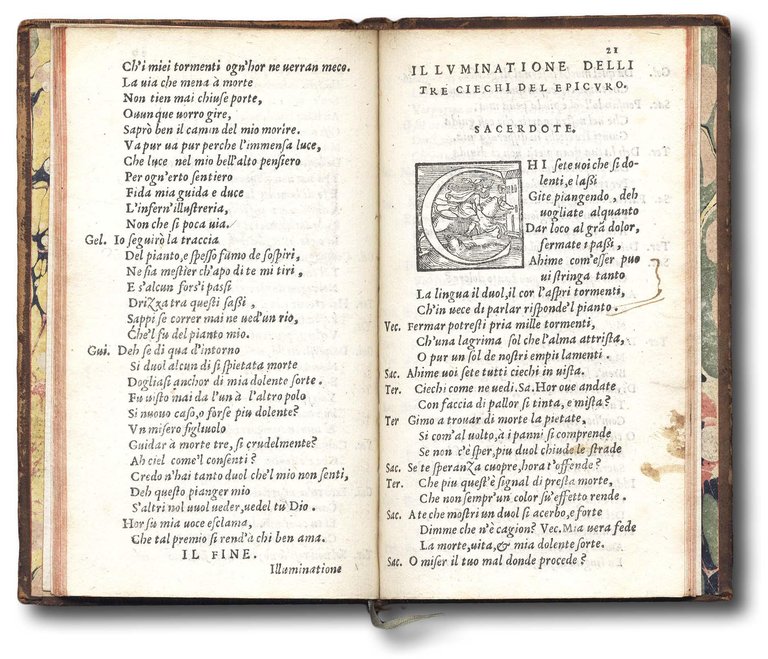 Ch'i miei tormenti ogn'hor ne uerran meco.
La uia che mena à morte
Non tien mai chiuse porte,
Ouunque uorro gire,
Saprò ben il camin del mio morire.
Va pur ua pur perche l'immensa luce,
Che luce nel mio bell'alto pensiero
Per ogn'erto sentiero
Fida mia guida e duce
L'infern'illustreria,
Non che si poca uia.
Gel. Io seguirò la traccia
Del pianto, e spesso fumo de sospiri,
Ne sia mestier ch'apo di te mi tiri,
E s'alcun fors'i passi
Drizza tra questi sassi,
Sappi se correr mai ne ued'un rio,
Che'l fu del pianto mio.
Gui. Deh se di qua d'intorno
Si duol alcun di si spietata morte
Dogliasi anchor di mia dolente sorte.
Fu uisto mai da l'un à l'altro polo
Si nuouo caso, o forse piu dolente?
Vn misero figluolo
Guidar à morte tre, si crudelmente?
Ah ciel come'l consenti?
Credo n'hai tanto duol che'l mio non senti,
Deh questo pianger mio
S'altri nol uuol ueder, uedel tù Dio.
Hor su mia uoce esclama,
Che tal premio si rend'à chi ben ama.
IL FINE.
Illuminatione
21
ILLVMINATIONE DELLI
TRE CIECHI DEL EPICVRO.
SACERDOTE.
CHI sete uoi che si do-
lenti, e lassi
Gite piangendo, deh
uogliate alquanto
Dar loco al grã dolor,
fermate i passi,
Ahime com'esser puo
ui stringa tanto
La lingua il duol, il cor l'aspri tormenti,
Ch'in uece di parlar risponde'l pianto.
Vec. Fermar potresti pria mille tormenti,
Ch'una lagrima sol che l'alma attrista,
O pur un sol de nostri empii lamenti.
Sac. Ahime uoi sete tutti ciechi in uista.
Ter. Ciechi come ne uedi. Sa. Hor oue andate
Con faccia di pallor si tinta, e mista?
Ter Gimo a trouar di morte la pietate,
Si com'al uolto, à i panni si comprende
Se non c'è sper, piu duol chiude le strade
Sac. Se te speranza cuopre, hora t'offende?
Ter. Che piu quest'è signal di presta morte,
Che non sempr'un color su'effetto rende.
Sac. A te che mostri un duol si acerbo, e forte
Dimme che n'è cagion? Vec. Mia uera fede
La morte, uita, & mia dolente sorte.
Sac. O miser il tuo mal donde procede?